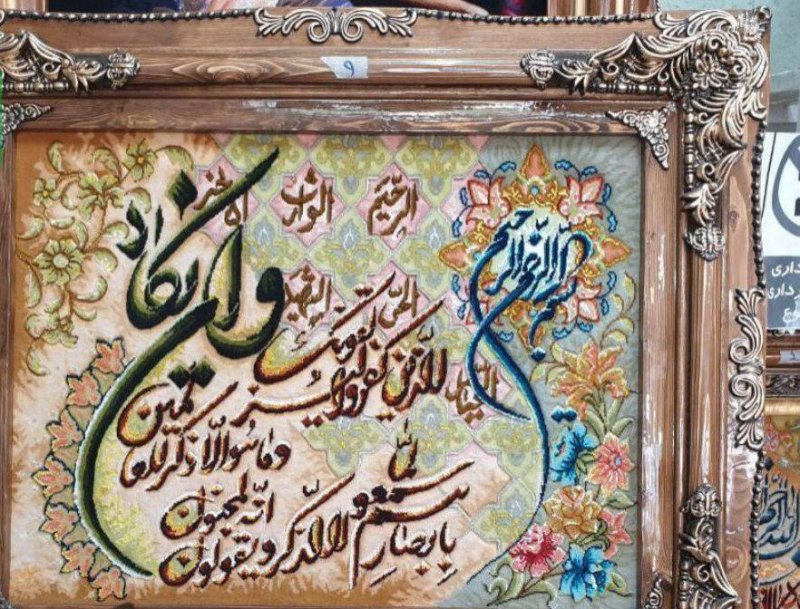 ۹
بسم الله الرحمن الرحیم
الرحیم
الوارث
الحی
الشهید
وان یکاد
الذین کفروا لیزلقونک
بابصارهم لما سمعوا الذکر و یقولون
انه لمجنون
وما هو الا ذکر للعالمین
داری
داری